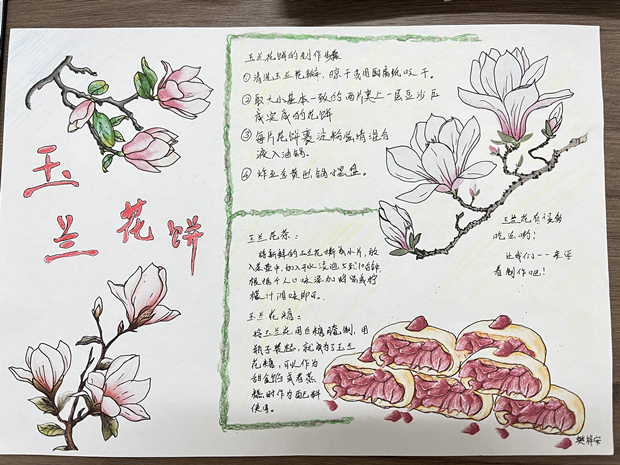 玉兰花饼
玉兰花饼的制作步骤
①清洗玉兰花瓣,晾干或用厨房纸吸干。
②取大小基本一致的两片夹上一层豆沙压
成完成的花饼
③每片花饼裹淀粉蛋清混合
液入油锅。
④炸至金黄色出锅摆盘。
玉兰花茶:
将新鲜的玉兰花撕成小片,放
入茶壶中,加入开水浸泡5到10分钟,
根据个人口味添加蜂蜜或柠
檬汁调味即可。
玉兰花糖:
将玉兰花用白糖腌制,用
瓶子装起,就成为了玉兰
花糖,可以作为
甜食馅或者蒸
糕时作为面料
使用。
玉兰花有这多
吃法哟!
让我们一一来学
着制作吧!
樊梓安